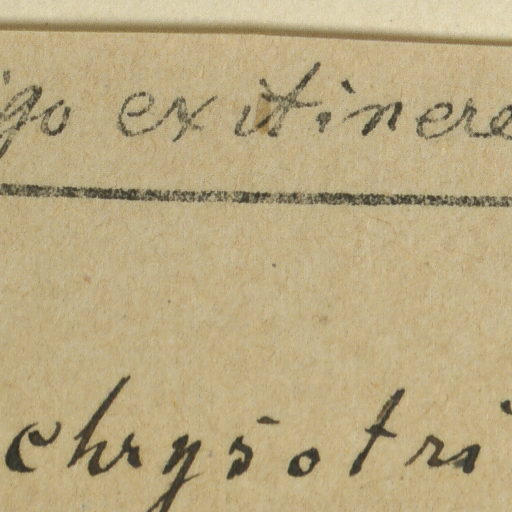 igo ex itinere
chrysotri